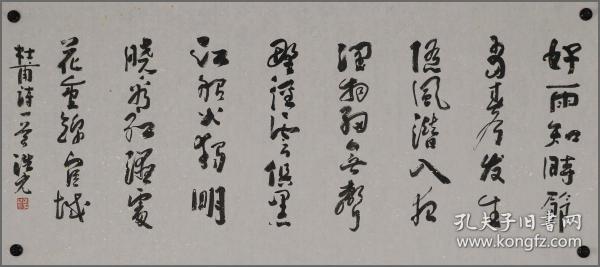 好雨知時節
當春乃发生
随風潜入夜
潤物細無聲
野徑雲俱黑
江船火獨明
曉看紅濕處
花重錦官城
杜甫詩一首
孔夫子旧书网
www.kongfz.com